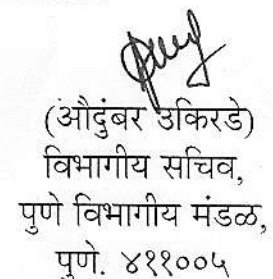 (औदुंबर उकिरडे)
विभागीय सचिव,
पुणे विभागीय मंडळ,
पुणे. ४११००५